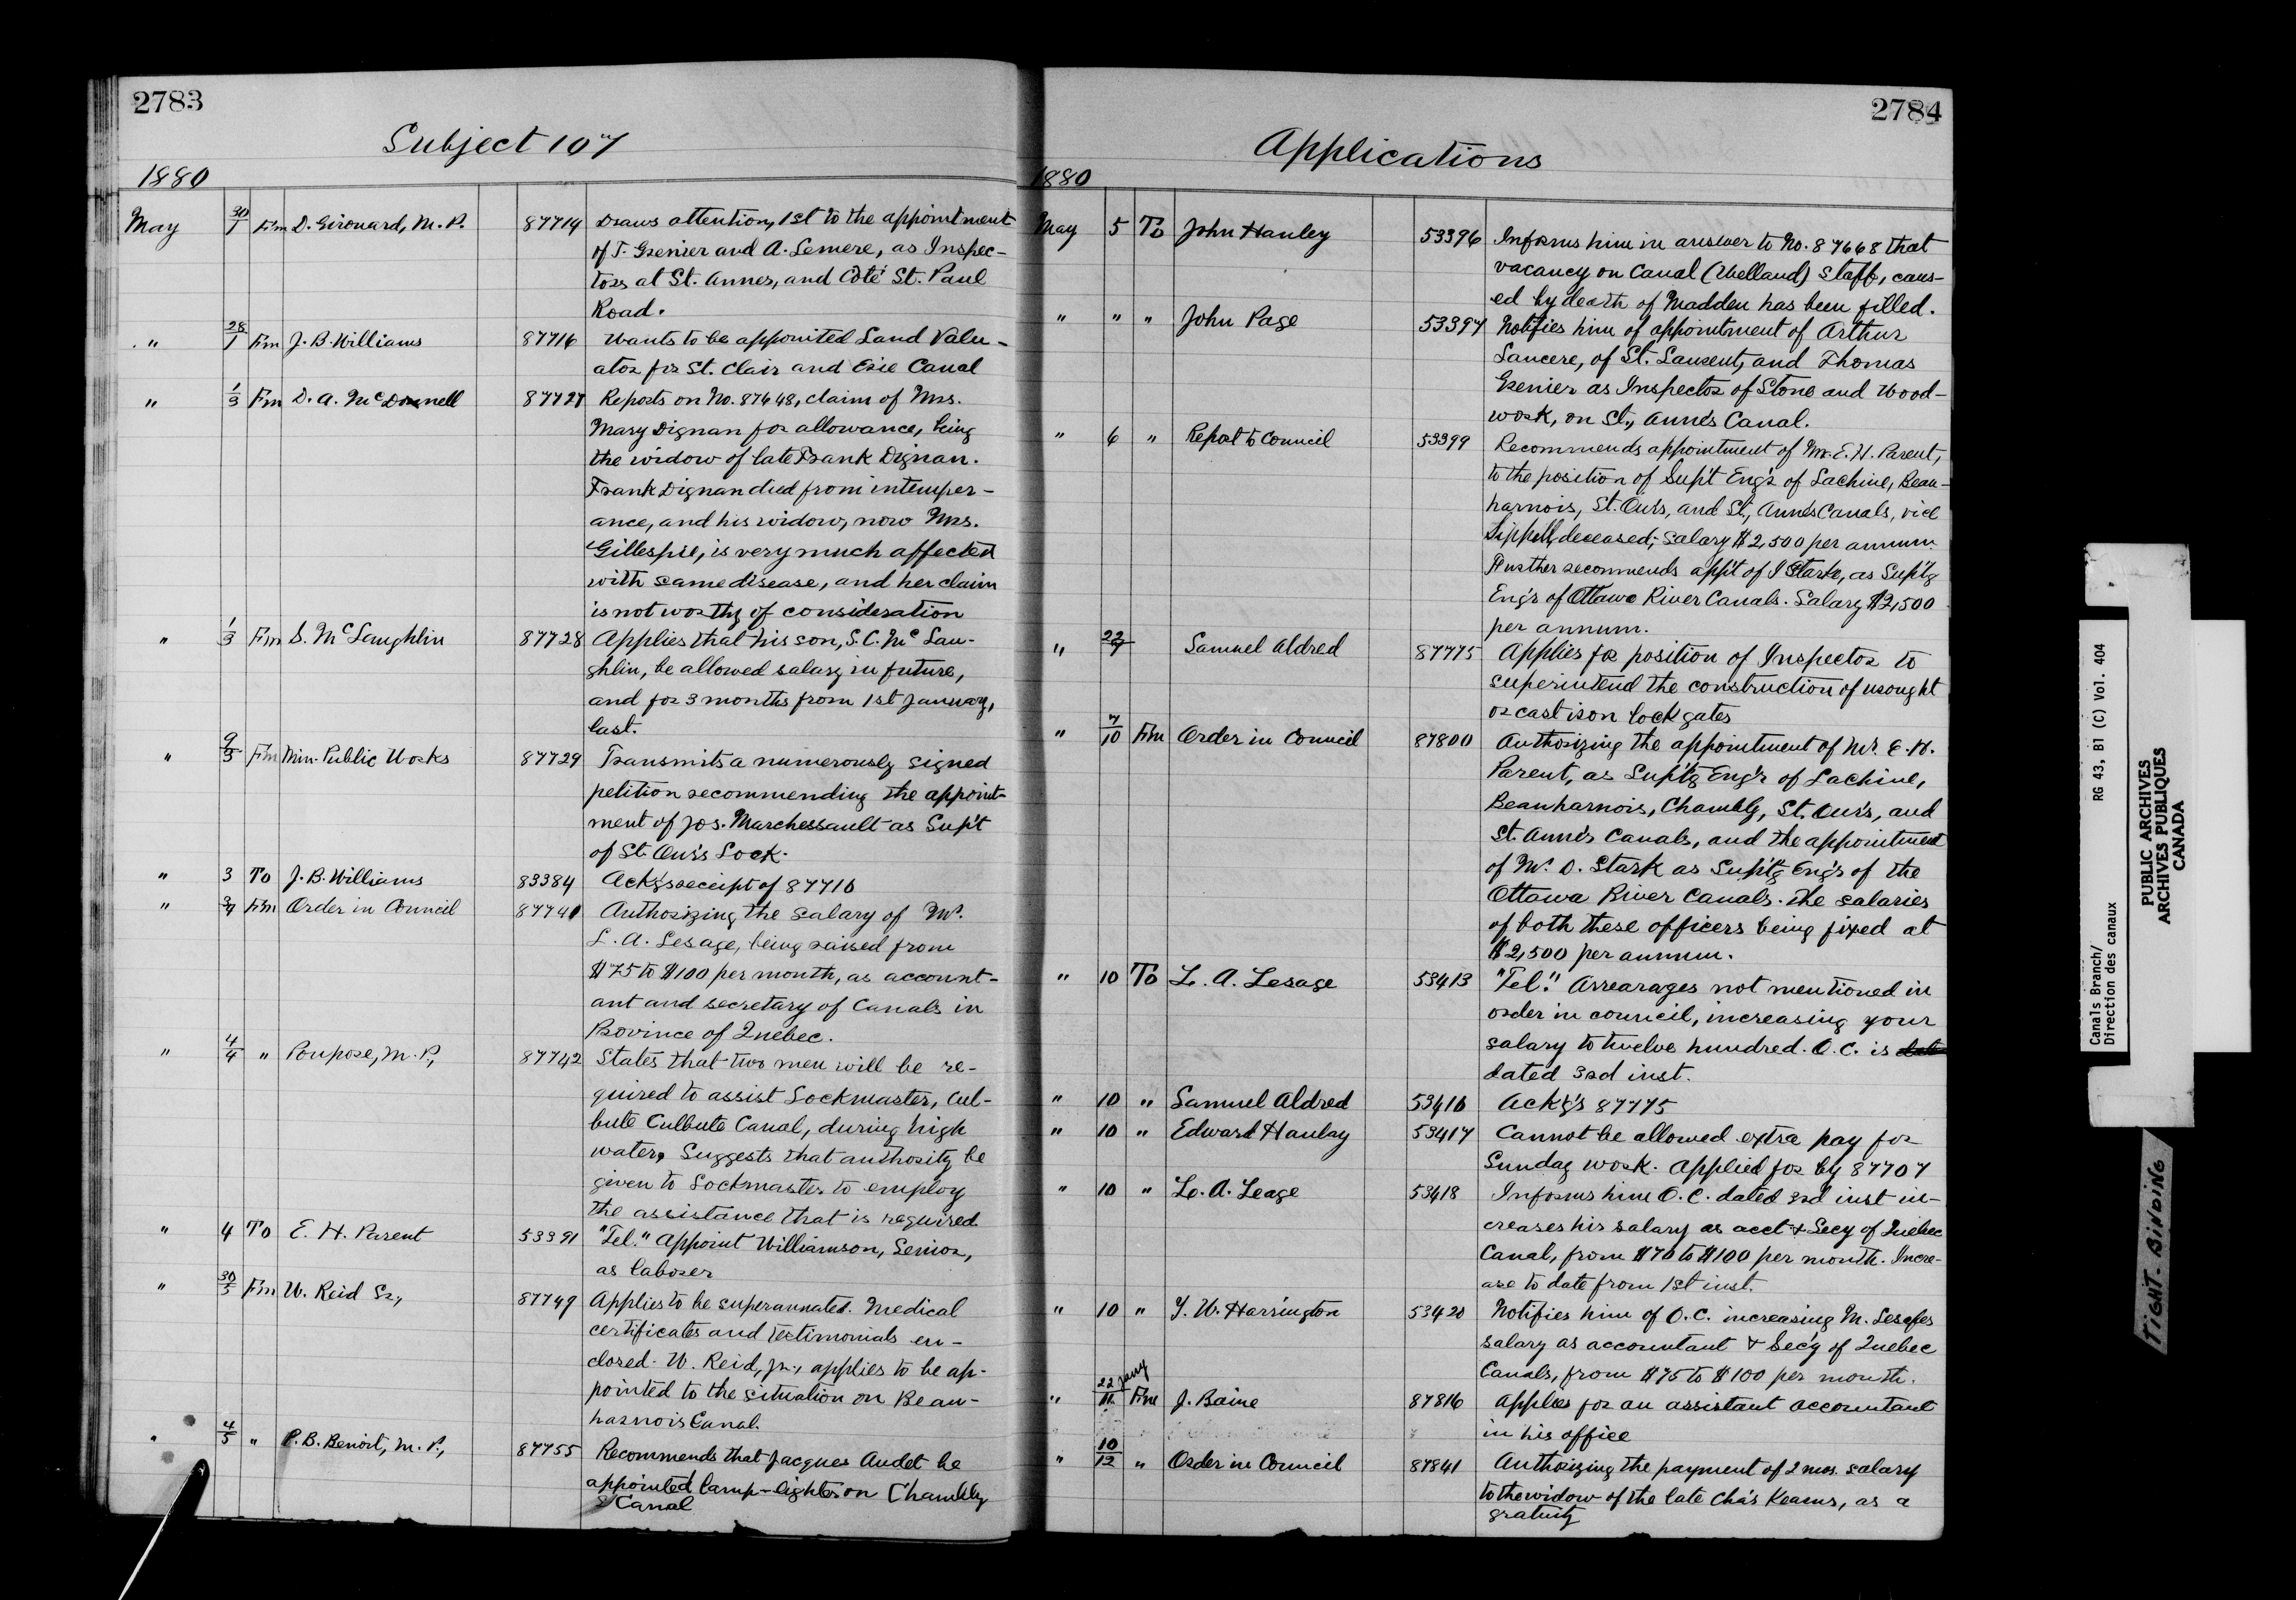 2783
Subject 107
1880
May 30/1 Fm D. Girouard, M. P. 87714 Draws attention, 1st to the appointment
of T. Grenier and A. Lemere, as Inspec-
tors at St. Annes, and Coté St. Paul
Road.
" 28/1 Fm J. B. Williams 87716 Wants to be appointed Land Valu-
ator for St. Clair and Erie Canal
" 1/3 Fm D. A. McDonnell 87727 Reports on No. 87648, claim of Mrs.
Mary Dignan for allowance, being
the widow of late Frank Dignan.
Frank Dignan died from intemper-
ance, and his widow, now Mrs.
Gillespie, is very much affected
with same disease, and her claim
is not worthy of consideration
" 1/3 Fm S. McLaughlin 87728 Applies that his son, S. C. McLau-
ghlin, be allowed salary in future,
and for 3 months from 1st January,
last.
" Fm Min. Public Works 87729 Transmits a numerously signed
petition recommending the appoint-
ment of Jos. Marchessault as Sup't
of St. Our's Lock.
" 3 To J. B. Williams 83384 Ack'gs receipt of 87716
" 3/4 Fm Order in Council 87741 Authorizing the salary of Mr.
L. A. Lesage, being raised from
$75 to $100 per month, as account-
ant and secretary of Canals in
Province of Quebec.
" 4/4 " Poupore, M. P., 87742 States that two men will be re-
quired to assist Lockmaster, Cul-
bute Culbute Canal, during high
water, Suggests that authority be
given to Lockmaster to employ
the assistance that is required
" 4 To E. H. Parent 53391 "Tel." Appoint Williamson, Senior,
as laborer
" 30/5 Fm W. Reid Sr., 87749 Applies to be superannuated. Medical
certificates and testimonials en-
closed. W. Reid, jr., applies to be ap-
pointed to the situation on Beau-
harnois Canal.
" 4/5 " P. B. Benoit, M. P., 87755 Recommends that Jacques Audet be
appointed lamp-lighter on Chambly
Canal
2784
Applications
1880
May 5 To John Hanley 53396 Informs him in answer to No. 87668 that
vacancy on Canal (Welland) Staff, caus-
ed by death of Madden has been filled.
" " " John Page 53397 Notifies him of appointment of Arthur
Lancere, of St. Laurent, and Thomas
Grenier as Inspector of Stone and Wood-
work, on St., Anne's Canal.
" 6 " Report to Council 53399 Recommends appointment of Mr. E. H. Parent,
to the position of Sup't Eng'r of Lachine, Beau-
harnois, St. Our's, and St., Anne's Canals, vice
Sippell, deceased; salary $2,500 per annum.
Further recommends app't of Stark, as Sup'tg
Eng'r of Ottawa River Canals. Salary $2,500
per annum.
" Samuel Aldred 87775 Applies for position of Inspector to
superintend the construction of wrought
or cast iron lock gates
" 7/10 Fm Order in Council 87800 Authorizing the appointment of Mr. E. H.
Parent, as Sup'tg Eng'r of Lachine,
Beauharnois, Chambly, St. Our's, and
St. Anne's Canals, and the appointment
of Mr. D. Stark as Sup'tg Eng'r of the
Ottawa River Canals. The salaries
of both these officers being fixed at
$2,500 per annum.
" 10 To L. A. Lesage 53413 "Tel." Arrearages not mentioned in
order in council, increasing your
salary to twelve hundred. O. C. is date
dated 3rd inst.
" 10 " Samuel Aldred 53416 Ack'g's 87775
" 10 " Edward Hanlay 53417 Cannot be allowed extra pay for
Sunday work. Applied for by 87707
" 10 " L. A. Leage 53418 Informs him O. C. dated 3rd inst in-
creases his salary as acct & Secy of Quebec
Canal, from $70 to $100 per month. Incre-
ase to date from 1st inst.
" 10 " T. W. Harrington 53420 Notifies him of O. C. increasing M. Lesages
salary as accountant & Sec'y of Quebec
Canals, from $75 to $100 per month.
" 22 Jany/11 Fm J. Baine 87816 Applies for an assistant accountant
in his office
" 10/12 " Order in Council 87841 Authorizing the payment of 2 mos. salary
to the widow of the late Cha's Kearns, as a
gratuity
Canals Branch/ RG 43, B1 (C) Vol. 404
Direction des canaux
PUBLIC ARCHIVES
ARCHIVES PUBLIQUES
CANADA
TIGHT-BINDING